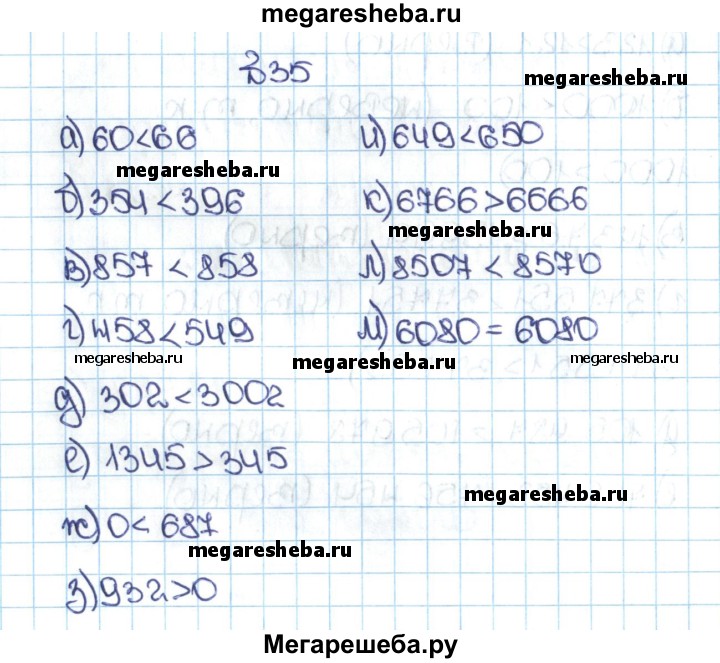 megaresheba.ru
№35
megaresheba.ru
а) 60<66
и) 649<650
megaresheba.ru
б) 354 < 396
к) 6766>6666
megaresheba.ru
в) 857 < 858
л) 8507 < 8570
г) 458<549
м) 6080 = 6080
megaresheba.ru
megaresheba.ru
megaresheba.ru
д) 302<3002
е) 1345>345
megaresheba.ru
ж) 0< 687
megaresheba.ru
з) 932>0
Мегарешеба.ру